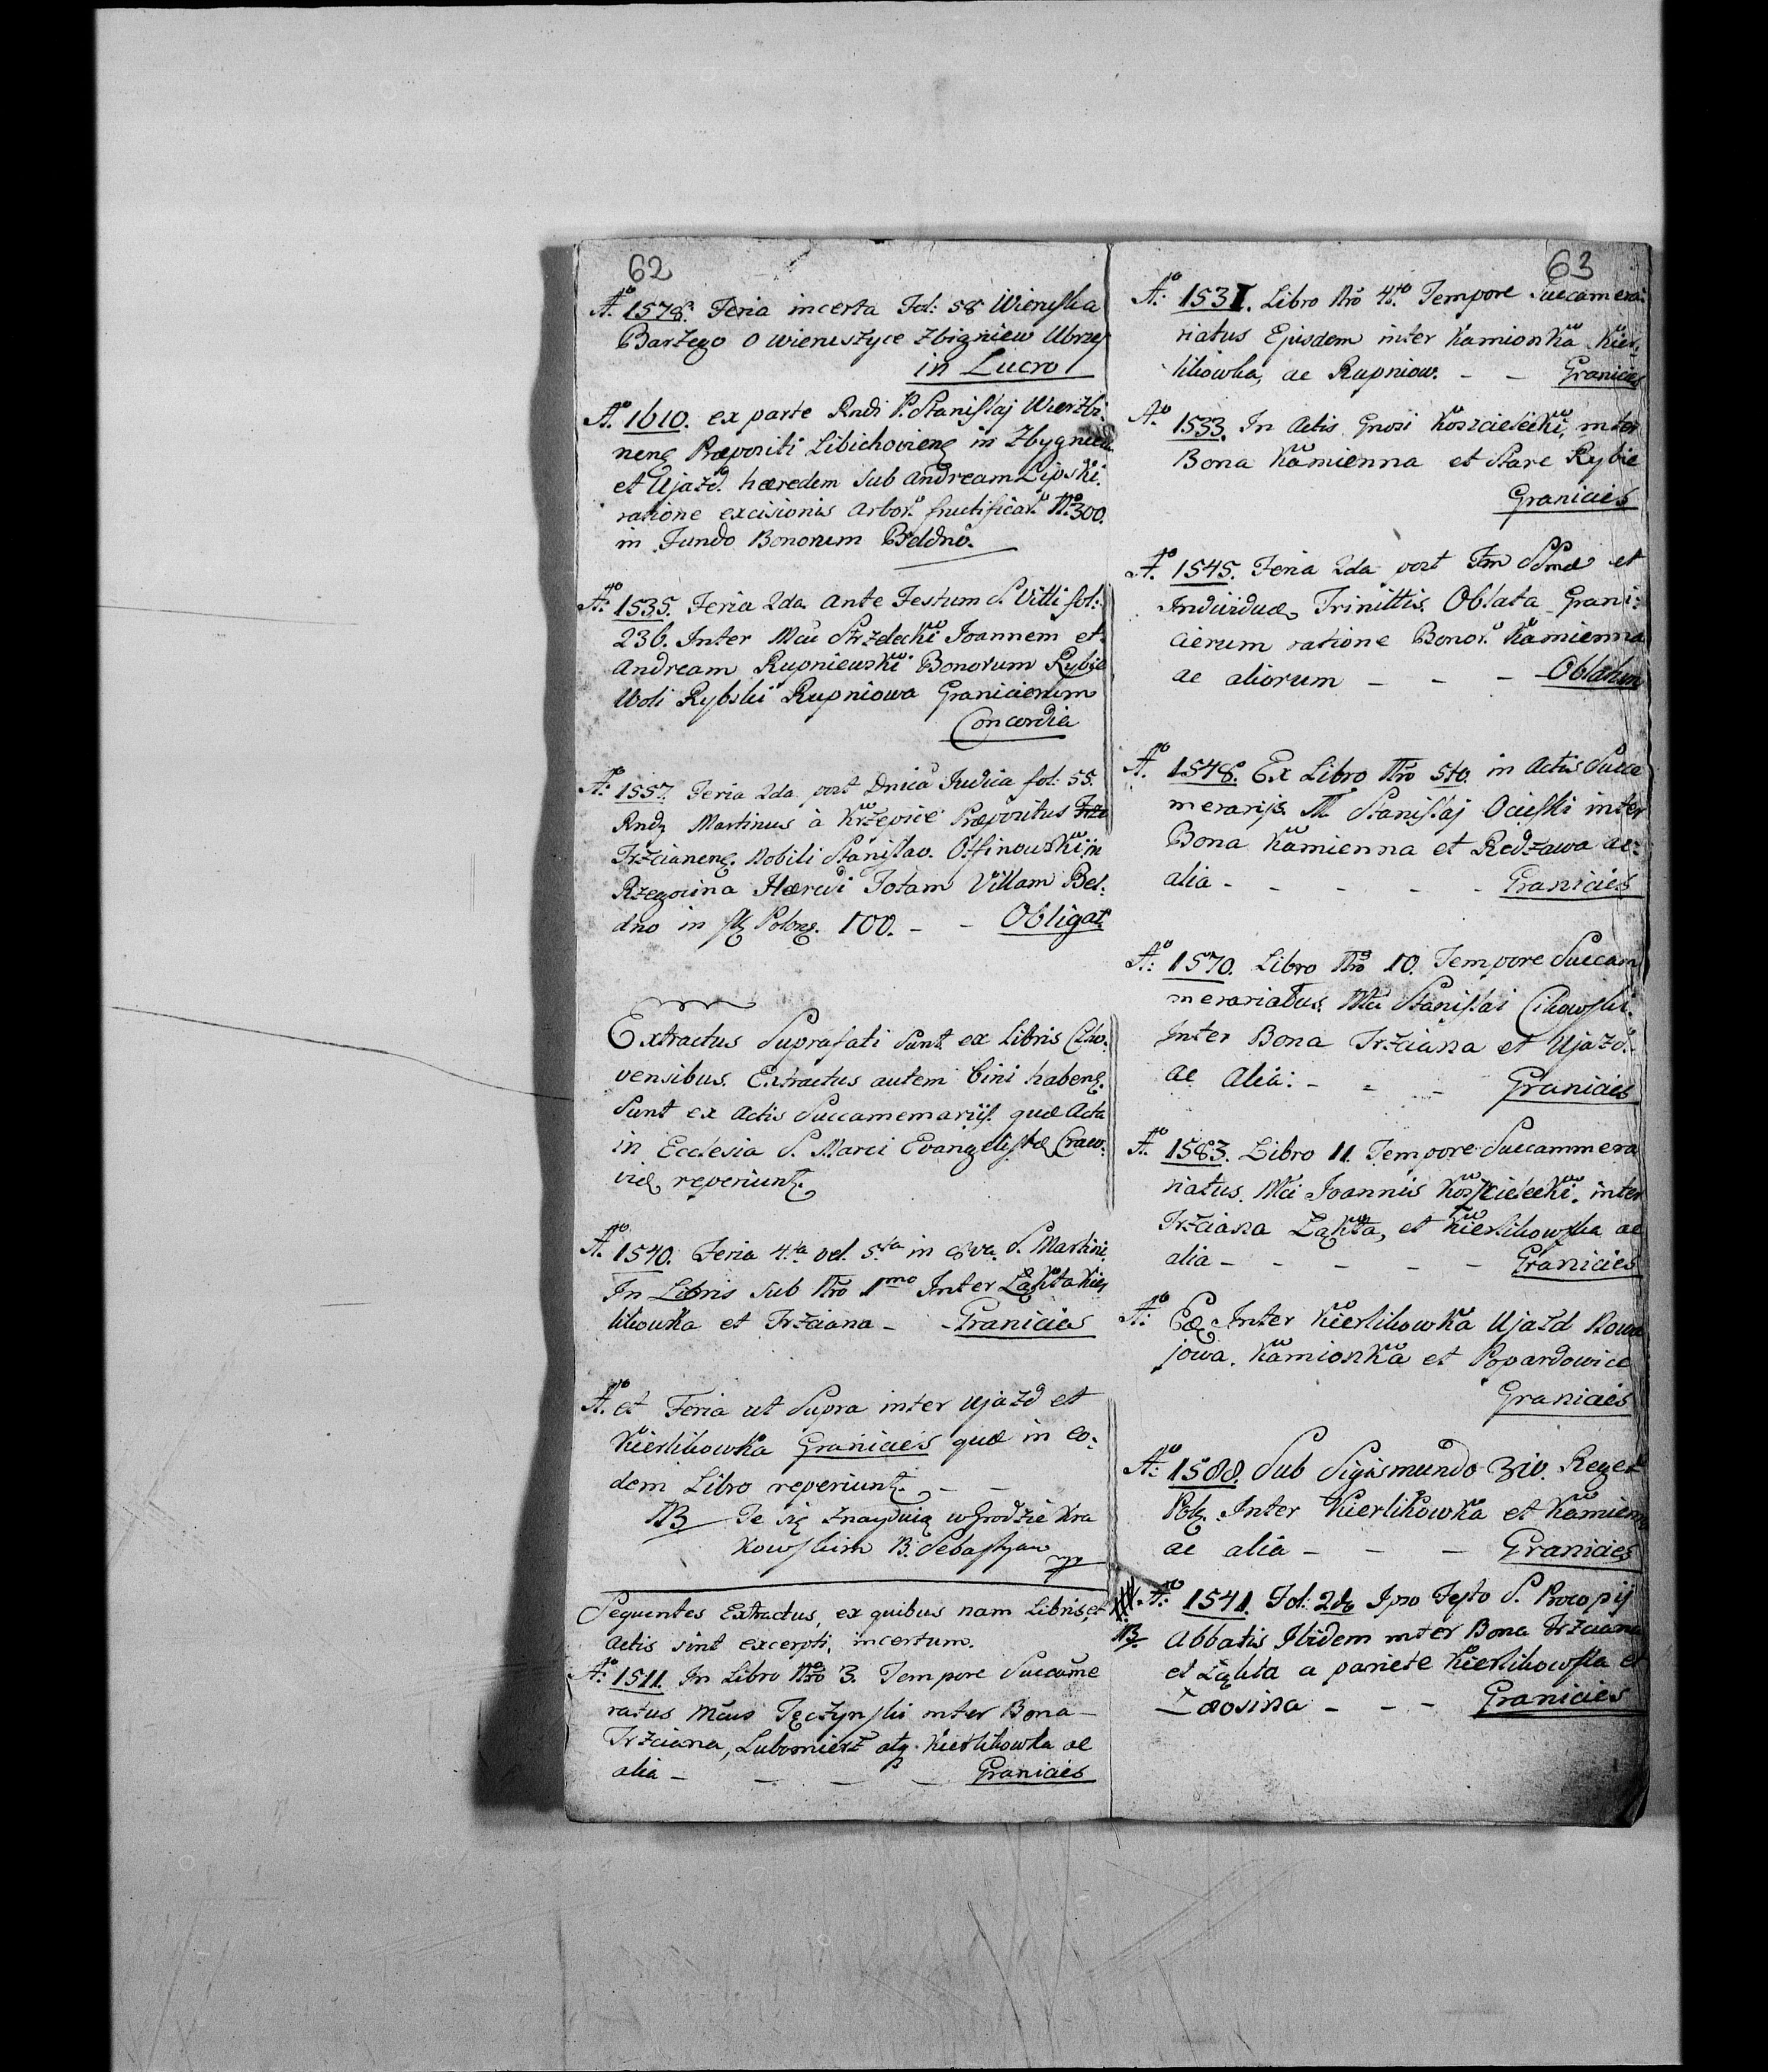 62
Aº 1578. Feria incerta Fol: 58 Wieruska
Barzego o wieruszyce Zbigniew Ubrzey
in Lucro
Aº 1610. ex parte Rndi P. Stanislaj Wierzbi-
neng Præpositi Libichovieng in Zbygniew
et Ujazd. hæredem sub Andream Lipski.
ratione excisionis arbor. fructificar. Nº 300.
in Fundo Bonorum Beldno.
Aº 1535. Feria 2da ante Festum S. Viti fol:
236. Inter Mcu Strzelecki Joannem et
Andream Rupniewski Bonorum Rybie
Woli Rybski Rupniowa Granicierum
Concordia
Aº 1557. Feria 2da post Dnica Judica fol: 55.
Rndg Martinus à Krzepice Præpositus
Trzcianeng. Nobili Stanislao. Ossinowski in
Rzegocina Hæredi Totam Villam Bel:
dno in flg Poloneg. 100. - - Obligat
Extractus Suprafati Sunt ex Libris Cho:
vensibus. Extractus autem bini habeng.
Sunt ex Actis Succamemariis. quæ Acta
in Ecclesia S. Marci Evangelistæ Craco:
viæ reperiunt.
Aº 1540. Feria 4ta vel. 5ta in 8va. S. Martini
In Libris sub Nro 1mo Inter Łąkta Kier
likowka et Trzciana - Granicies
Aº et Feria ut Supra inter Ujazd et
Kierlikowka Granicies quæ in eo:
dem Libro reperiunt. - -
NB Te się znayduią w Grodzie Kra
kowskim B. Sebastyan
Sequentes Extractus, ex quibus nam Libris, et
Actis sint excerpti, incertum.
Aº 1511. In Libro Nro 3. Tempore Succame
ratus Mcus Tęczynski inter Bona -
Trzciana, Lubomierz atq. Kierlikowka ac
alia - - - - Granicies
63
Aº 1531. Libro Nro 4to Tempore Succamera:
riatus Ejusdem inter Kamionka Kier:
likowka, ac Rupniow. - - Granicies
Aº 1533. In Actis Gnosi Koszcielecki, inter
Bona Kamienna et Stare Rybie
Granicies
Aº 1545. Feria 2da post Fm Ssmæ et
Individuæ Trinittis. Oblata Grani:
cierum ratione Bonor. Kamienna
ac aliorum - - - Oblatum
Aº 1548. Ex Libro Nro 5to. in Actis Succa
merarijs. M Stanislaj Ocieski inter
Bona Kamienna et Redzawa ac:
alia - - - - - Granicies
Aº 1570. Libro Nro 10. Tempore Succam
merariatus. Mci Stanislai Cikowski.
Inter Bona Trzciana et Ujazd.
ac Alia: - - - Granicies
Aº 1583. Libro 11. Tempore Succammera
riatus. Mci Joannis Koszcielecki. inter
Trzciana Łąkta, et Kierlikowka ac
alia - - - - - Granicies
Aº Eog Inter Kierlikowka Ujazd Nowa
jowa. Kamionka et Popardowice
Granicies
Aº 1588. Sub Sigismundo 3tio. Reget
Polg. Inter Kierlikowka et Kamienn
ac alia - - - Granicies
Aº 1541. Fol: 2do Ipso Festo S. Procopij
NB Abbatis Ibidem inter Bona Trzciana
et Łąkta a pariete Kierlikowka et
Łososina - - - Granicies